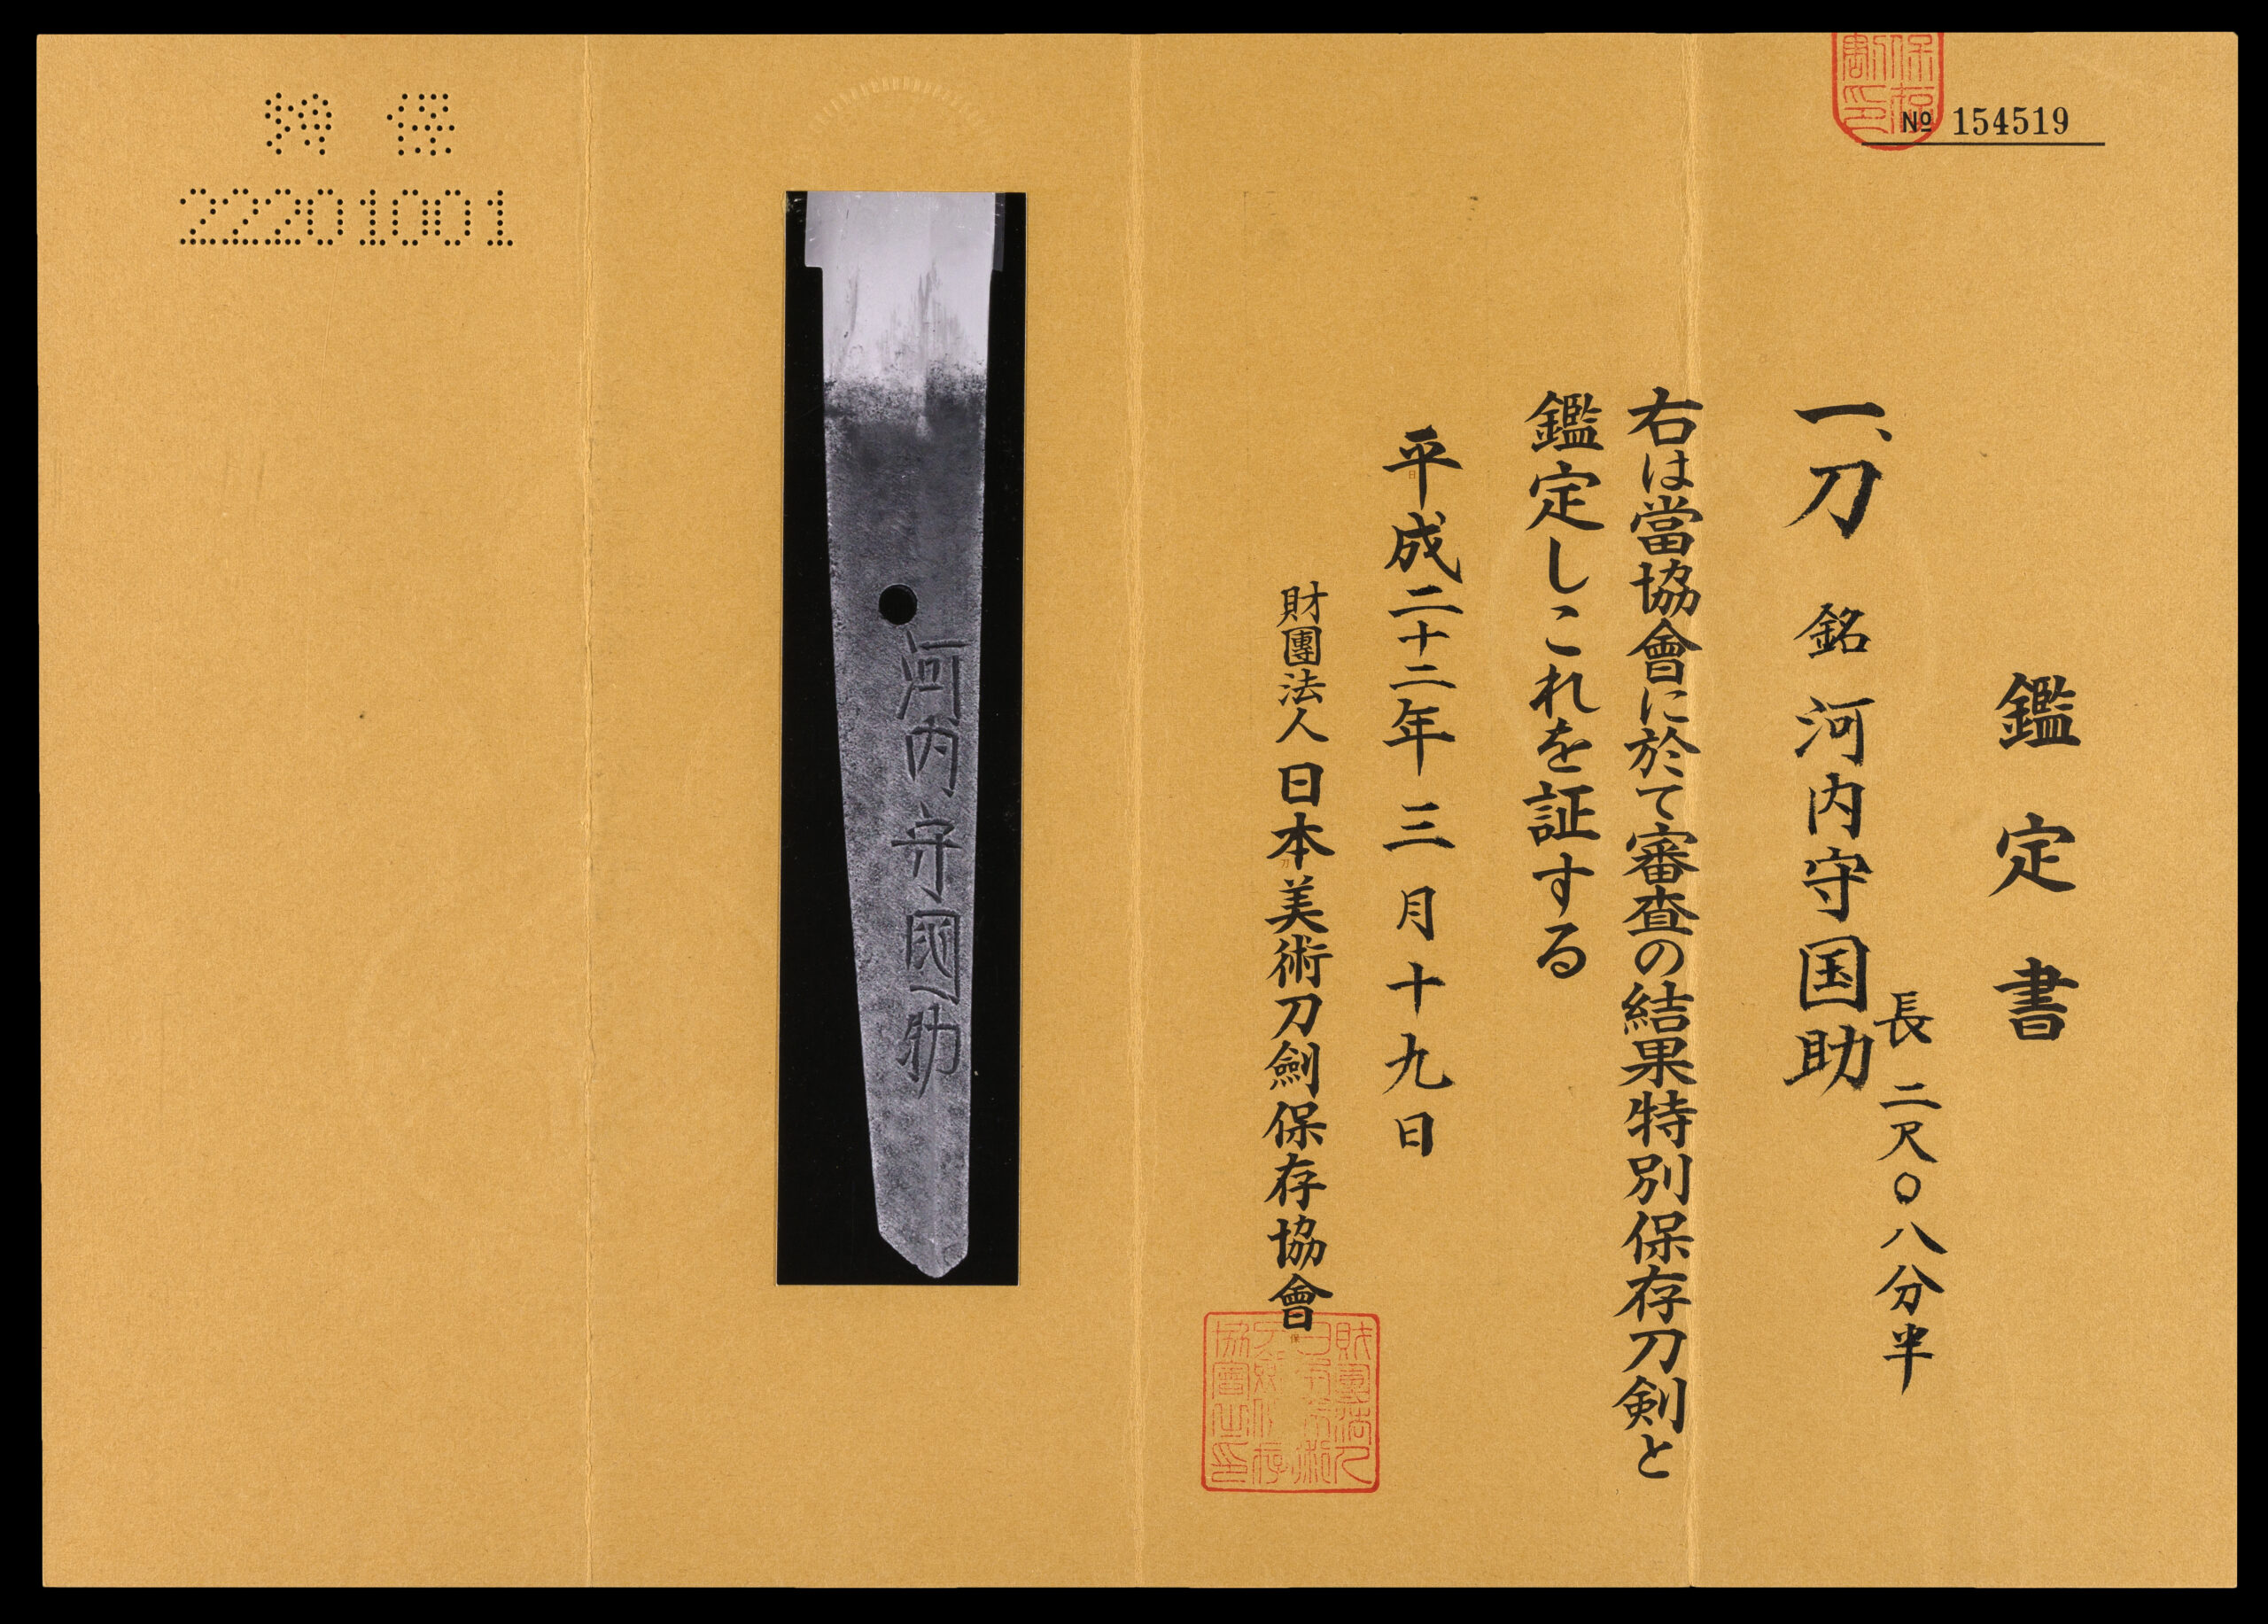 № 154519
鑑定書
一、刀 銘 河内守国助
長 二尺〇八分半
右は當協會に於て審査の結果特別保存刀剣と
鑑定しこれを証する
平成二十二年三月十九日
財團法人日本美術刀劍保存協會
河内守國助
特保
22201001